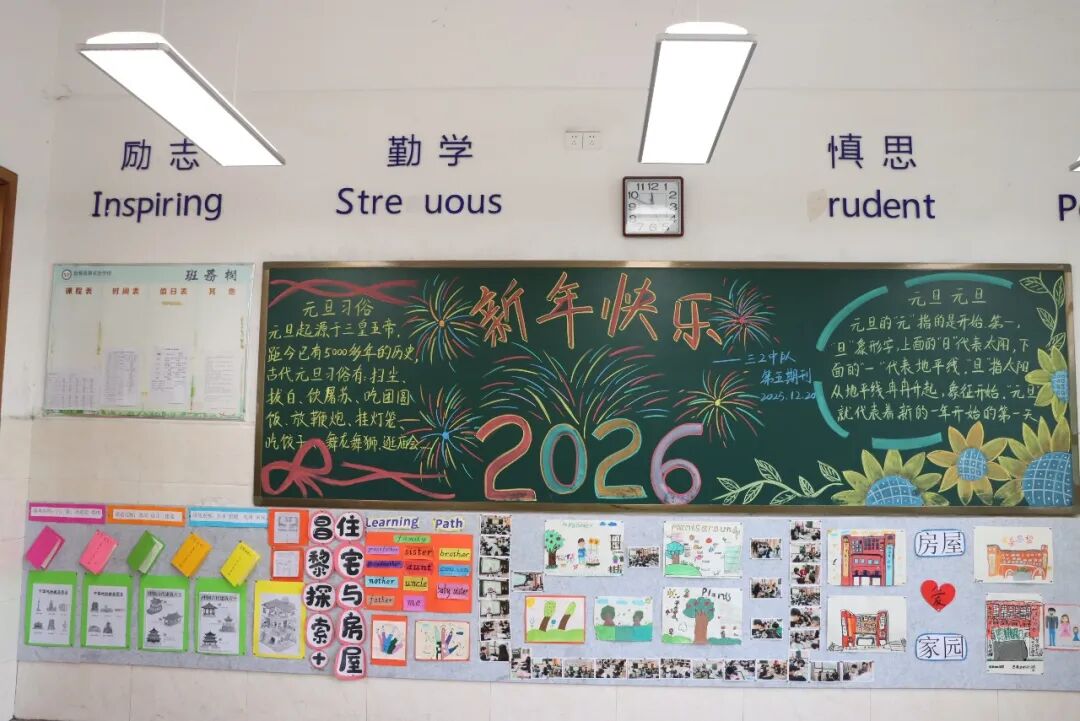 励志
Inspiring
勤学
Stre uous
慎思
rudent
班务栏
课程表
时间表
值日表
其他
元旦习俗
元旦起源于三皇五帝,
距今已有5000多年的历史,
古代元旦习俗有:扫尘、
拔白、饮屠苏、吃团圆
饭、放鞭炮、挂灯笼、
吃饺子、舞龙舞狮、逛庙会…
新年快乐
——三2中队
第五期刊
2025.12.20
2026
元旦元旦
元旦的“元”指的是开始、第一,
“旦”象形字,上面的“日”代表太阳,下
面的“一”代表地平线。“旦”指太阳
从地平线冉冉升起,象征开始。元旦
就代表着新的一年开始的第一天
昌黎探索+
住宅与房屋
Learning Path
family
sister
brother
aunt
mother
uncle
father
me
baby sister
Plants
房屋
家
家园